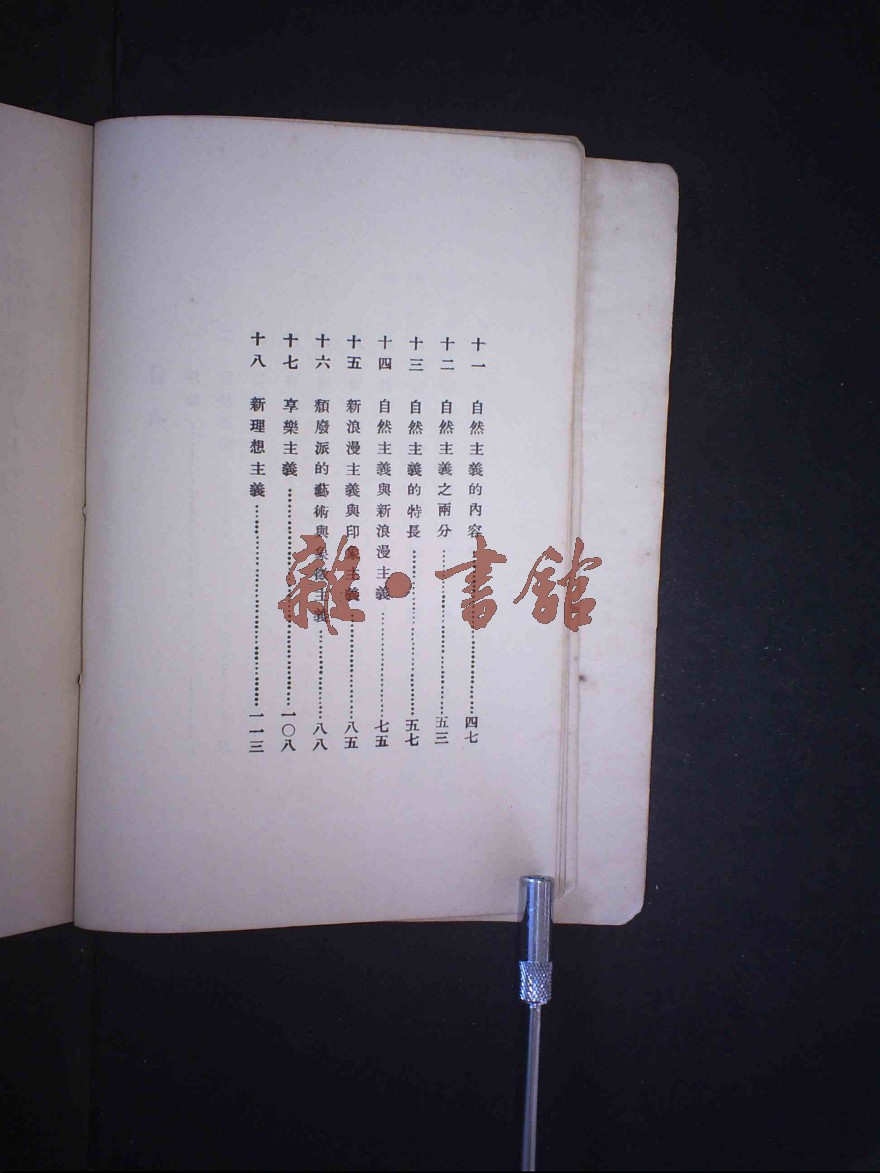 十一 自然主義的內容……四七
十二 自然主義之兩分……五三
十三 自然主義的特長……五七
十四 自然主義與新浪漫主義……七五
十五 新浪漫主義與印象主義……八五
十六 頹廢派的藝術與象徵主義……八八
十七 享樂主義……一〇八
十八 新理想主義……一一三
雜·書館